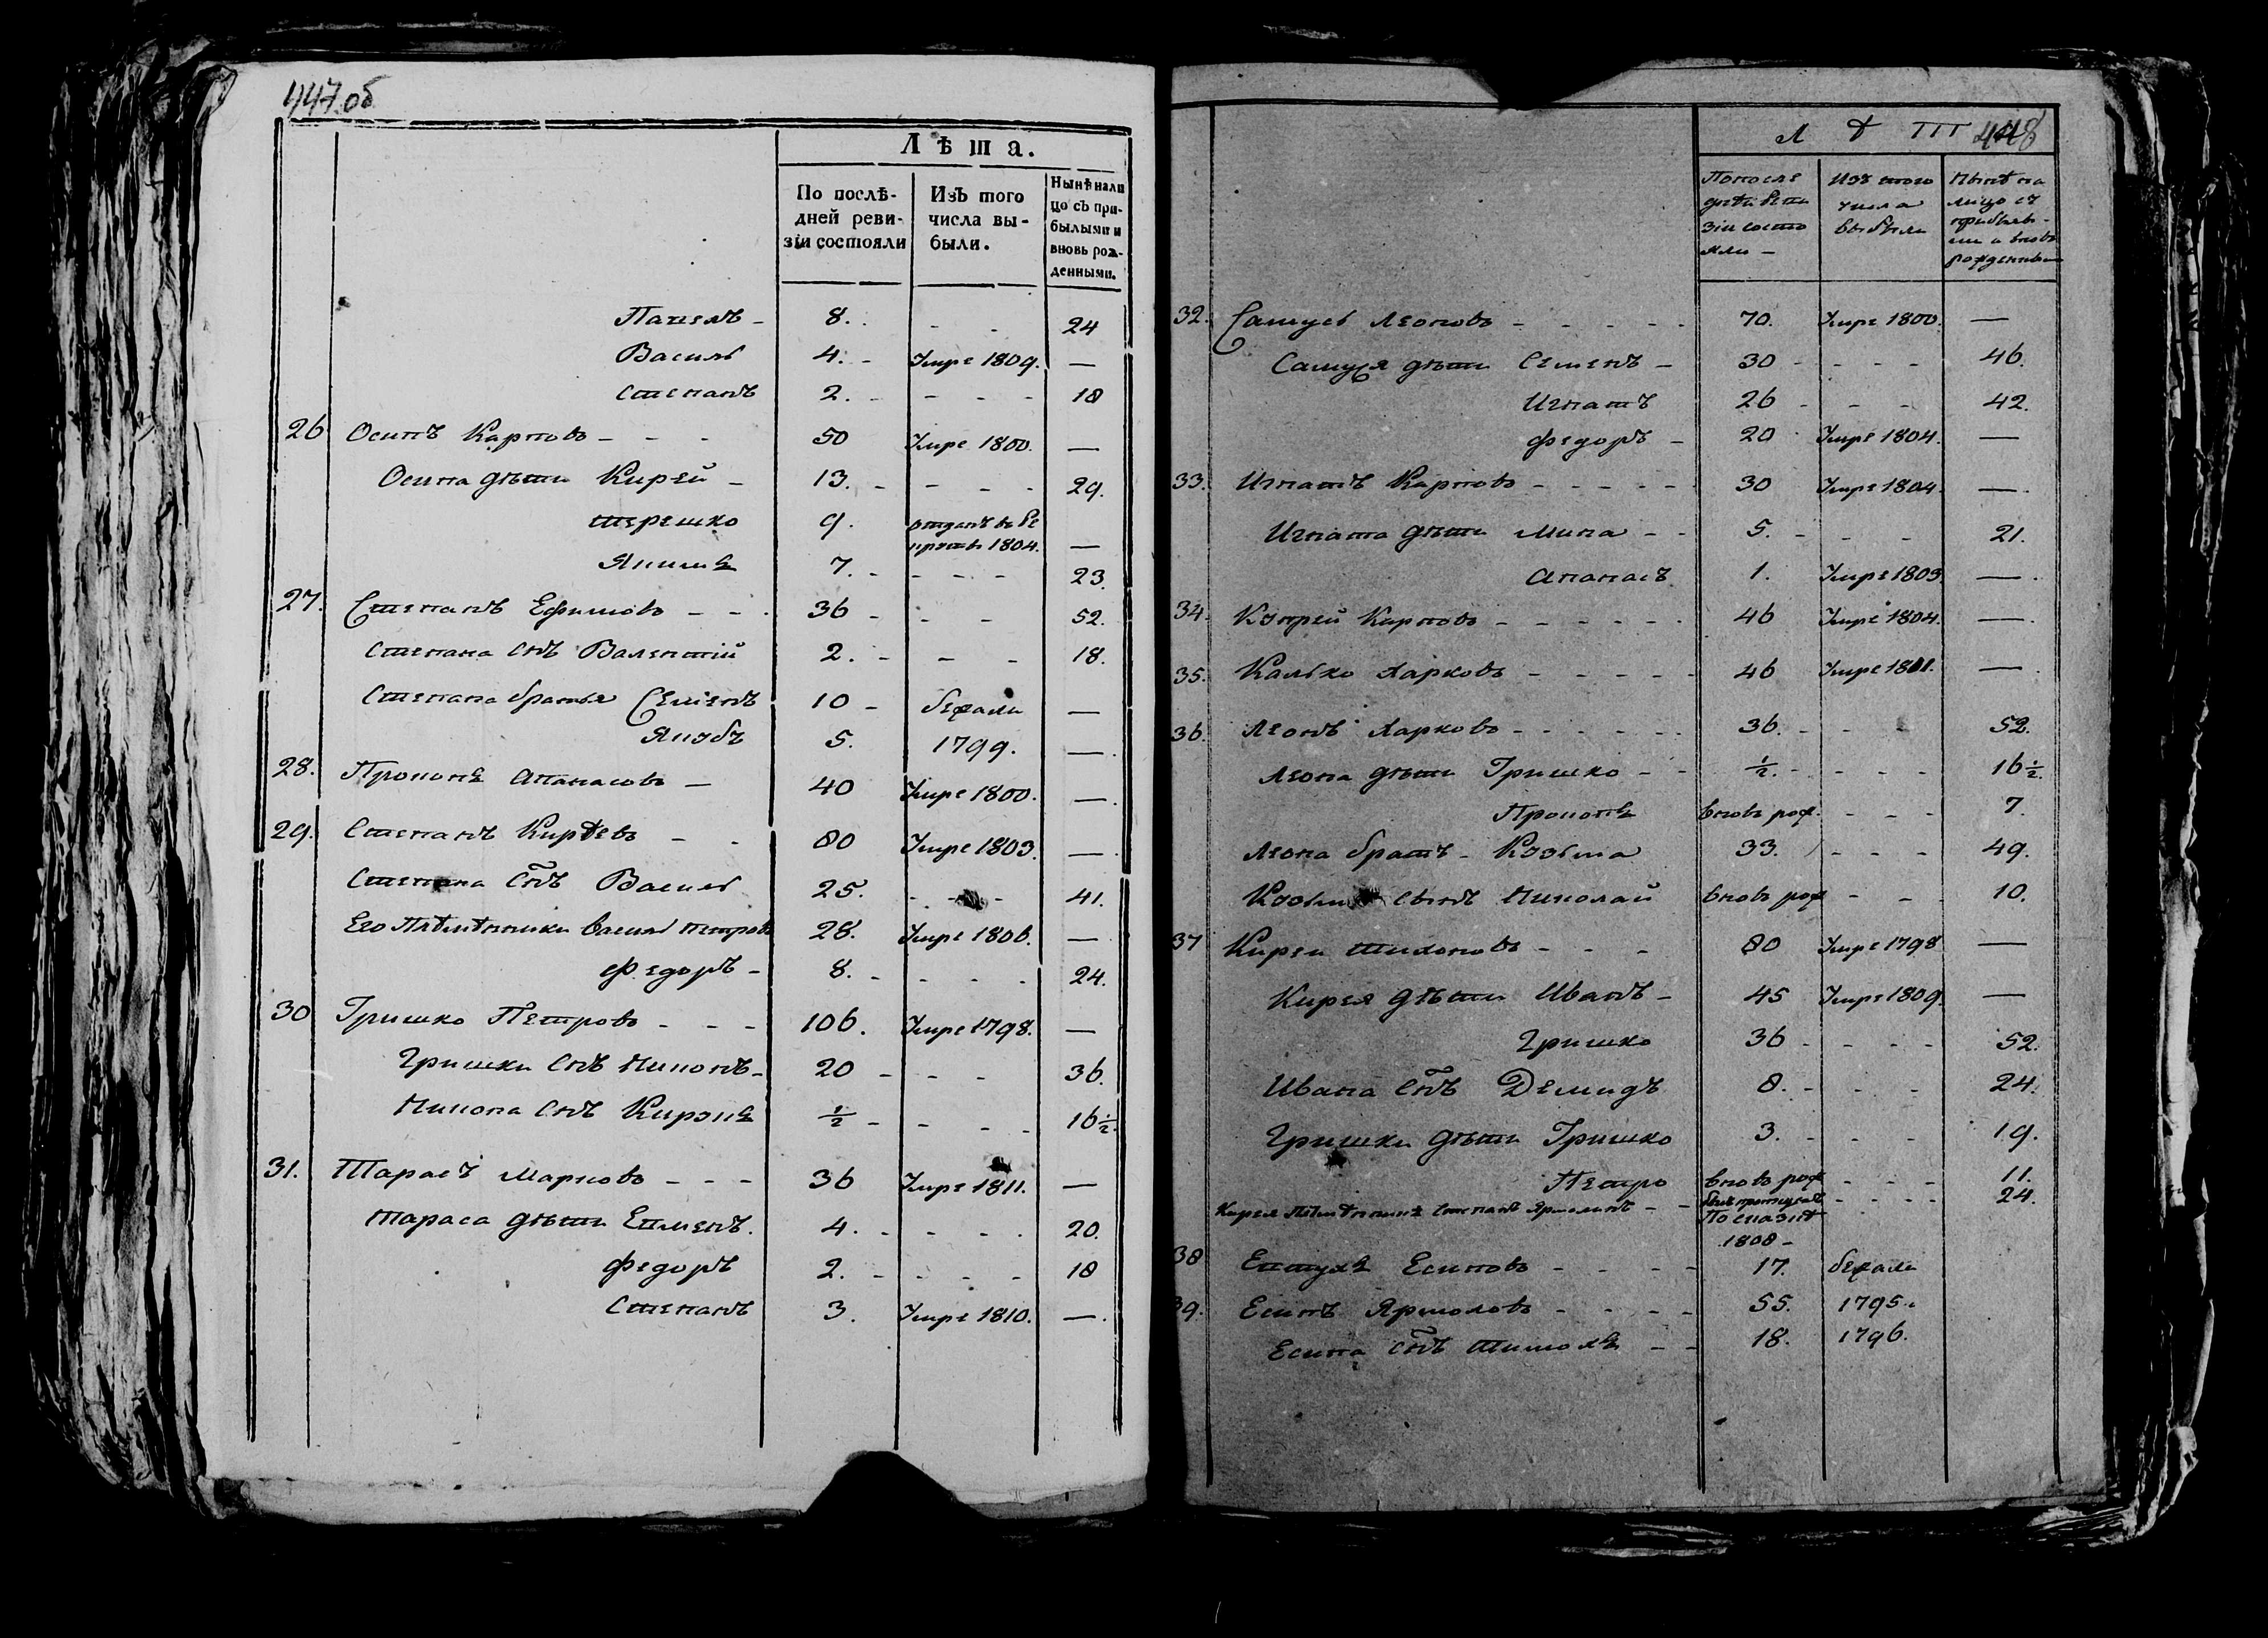 447 об
Лѣта.
По послѣ-
дней реви-
зіи состояли
Изъ того
числа вы-
были.
Нынѣ нали
цо съ при-
былыми и
вновь рож-
денными.
- 8. - - 24
Василь 4. - Умре 1809. —
Степанъ 2. - - - - 18
26 Осипъ Карповъ - - - 50 Умре 1800. —
Осипа дѣти Кирей - 13. - - - - 29.
Терешко 9. отданъ въ ре
круты 1804. —
Якимъ 7. - - - - 23.
27. Степанъ Ефимовъ - - - 36 - - - 52.
Степана снъ Валентій 2. - - - 18.
Степана братья Семенъ 10 - бежали —
Якубъ 5. 1799. —
28. Прокопъ Апанасовъ — 40 Умре 1800. —
29. Степанъ Кирѣевъ - - 80 Умре 1803. —
Степана снъ Василь 25. - - - 41.
Его Племѣнники Василь Петровъ 28. Умре 1806. —
Федоръ - 8. - - - - 24.
30 Гришко Петровъ - - - 106. Умре 1798. —
Гришки снъ Миконъ - 20 - - - 36.
Микона снъ 1/2 - - - - 16 1/2.
31. Тарасъ Марковъ - - - 36 Умре 1811. —
Тараса дѣти 4. - - - - 20.
Федоръ 2. - - - - 18
Степанъ 3. Умре 1810. —
448
Л Ѣ Т
Попослѣ
дней реви
зіи состо
яли —
Изъ того
числа
выбыли
Нынѣ на
лицо съ
прибылы-
ми и вновь
рожденным
32. Самусь Леоновъ - - - - - 70. Умре 1800. —
Самуся дѣти Семенъ - 30 - - - - 46.
Игнатъ 26 - - - 42.
Федоръ - 20 Умре 1804. —
33. Игнатъ Карповъ - - - - - 30 Умре 1804. —
Игната дѣти Мина - - 5. - - - 21.
Апанасъ 1. Умре 1803 —
34. Карповъ - - - - - - 46 Умре 1804. —
35. Калько Харковъ - - - - - 46 Умре 1801. —
36. Леонъ Харковъ - - - - - - 36. - - - 52.
Леона дѣти Гришко - - 1/2. - - - - 16 1/2.
Прокопъ вновь рож. - - - 7.
Леона братъ - Козьма 33. - - - 49.
сынъ Миколай вновь рож - - - 10.
37 Кирей Тихоновъ - - - 80 Умре 1798 —
Кирея дѣти Иванъ - 45 Умре 1809. —
Гришко 36 - - - - 52.
Ивана снъ Демидъ 8. - - - 24.
Гришки дѣти Гришко 3. - - - 19.
Петро вновь рож - - - 11.
Кирея Племѣнникъ Степанъ - - - - - - 24.
По сказкѣ
1808 -
38 Есиповъ - - - - 17. бежали
39. Есипъ Ярмоловъ - - - - 55. 1795.
Есипа снъ - - 18. 1796.